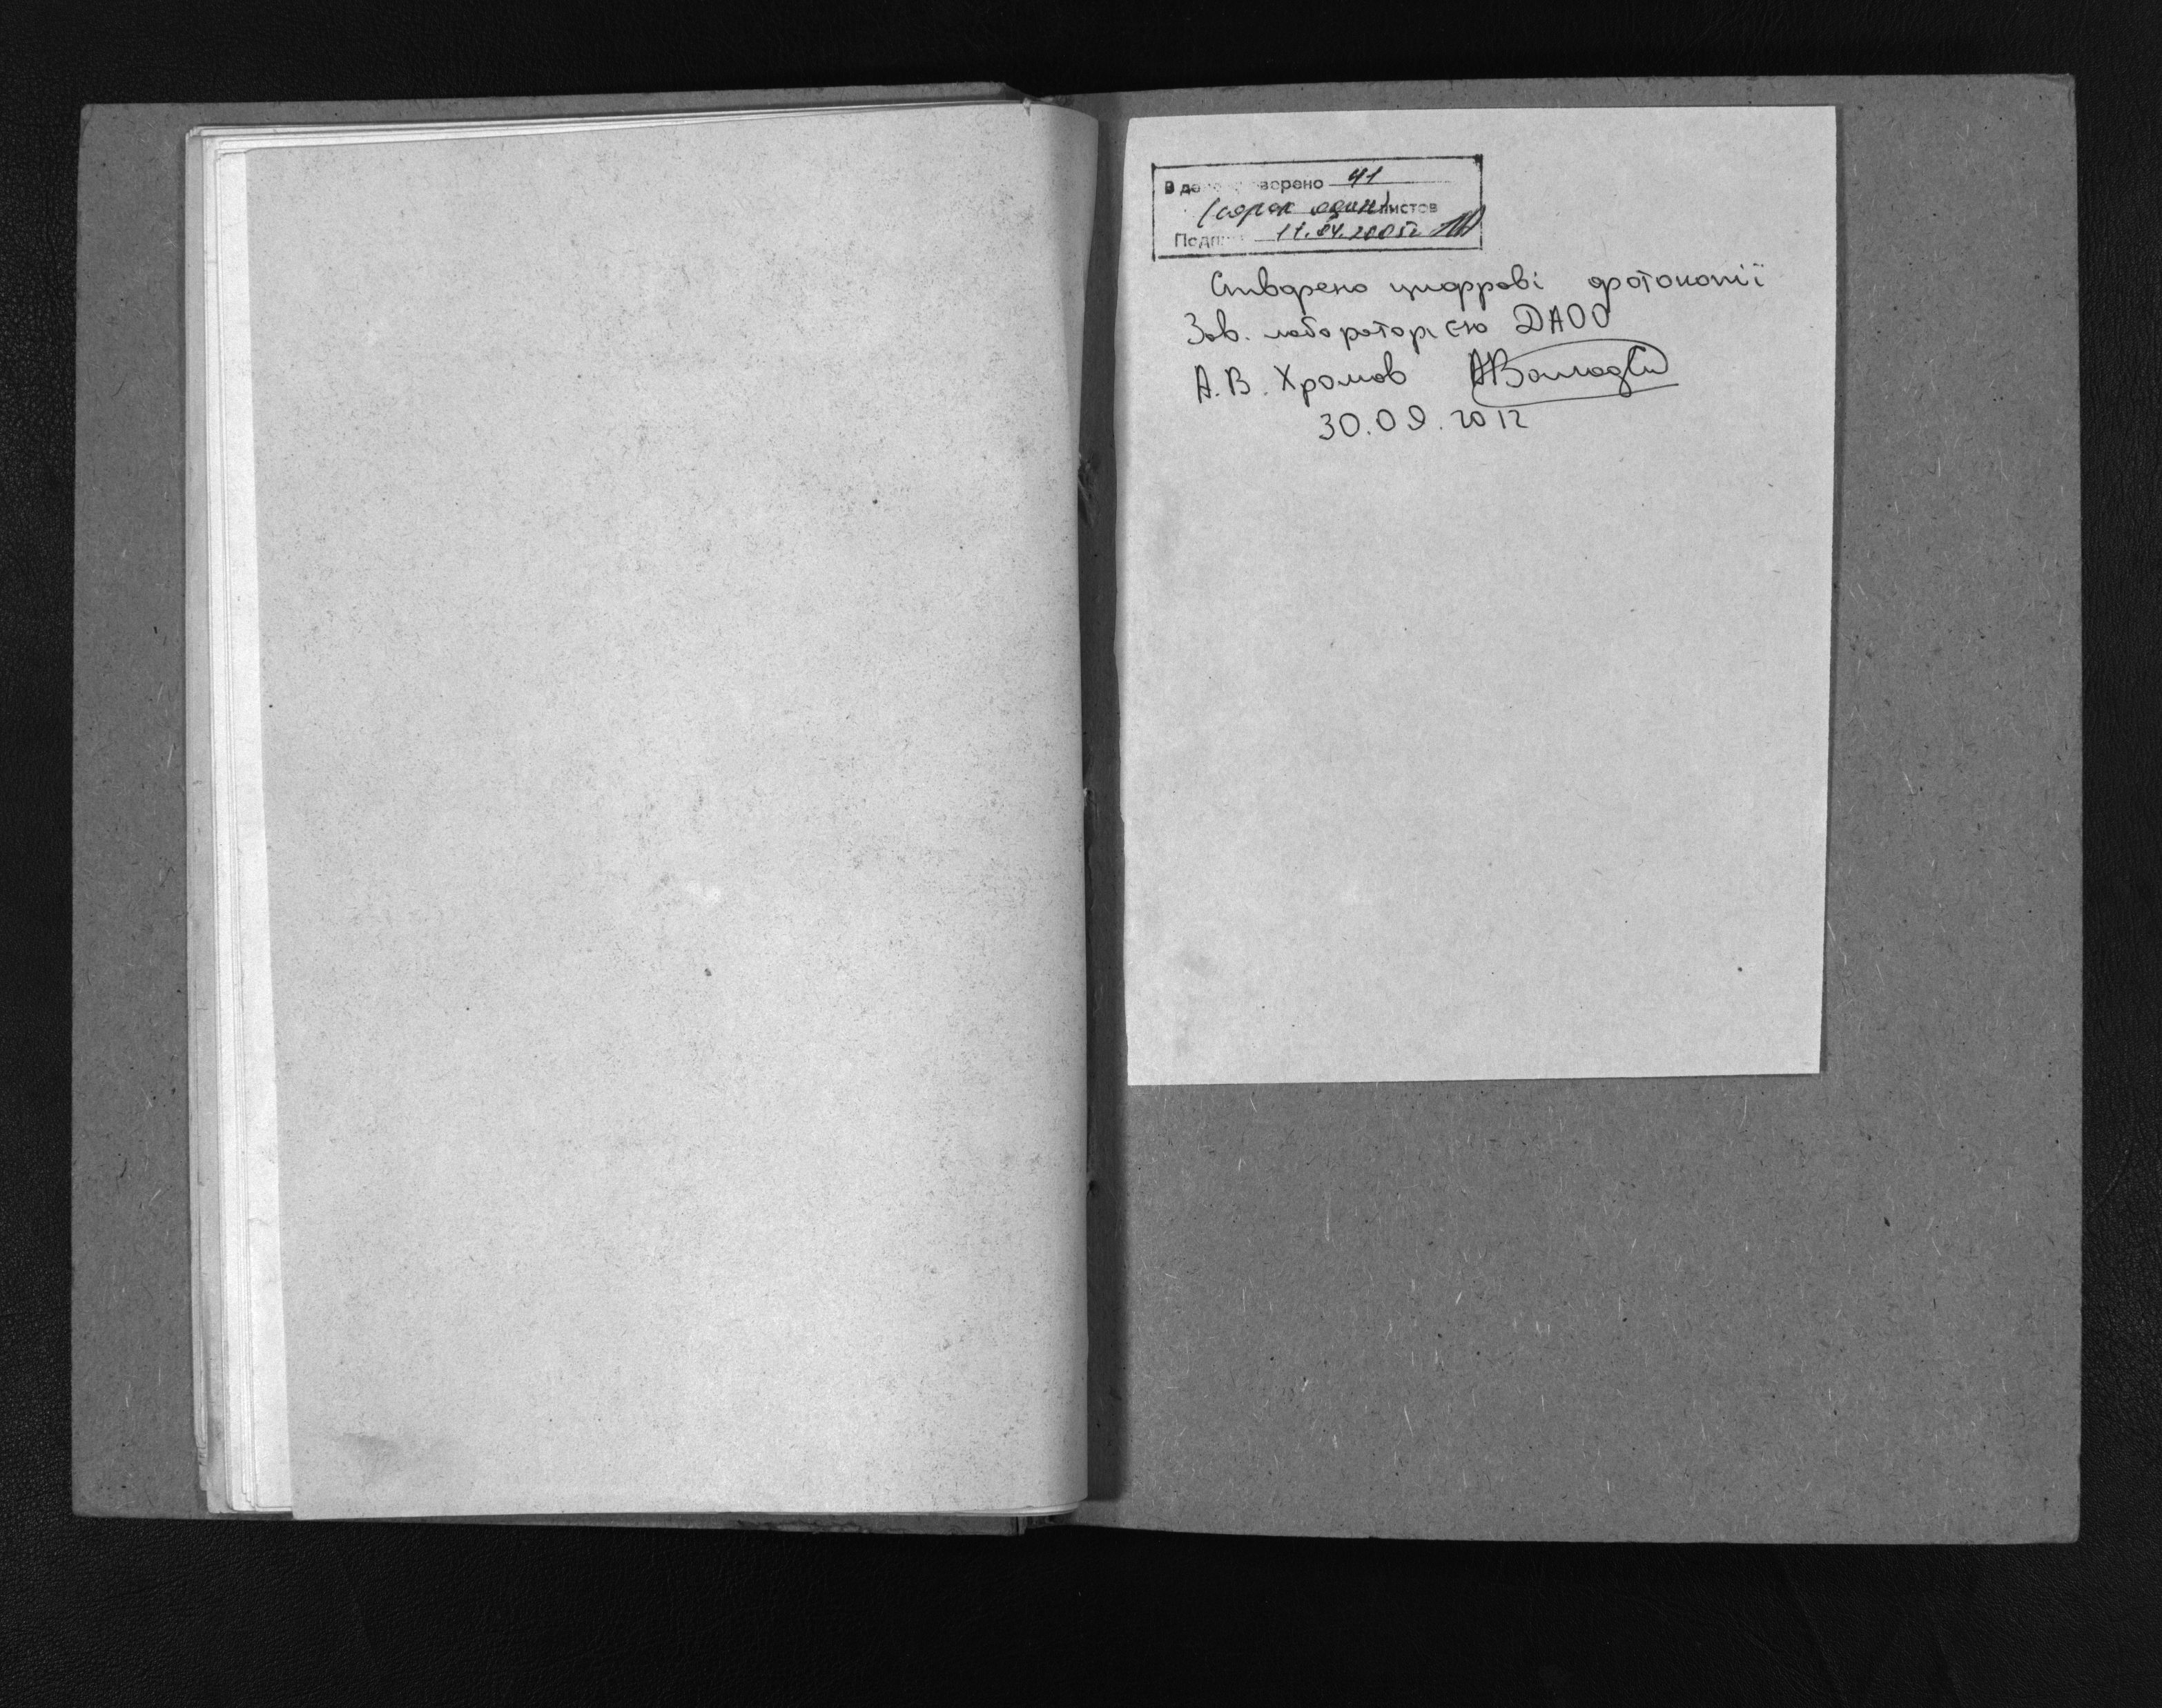 В де ворено 41
(сорок один) листов
Подп 11.04.2005г
Створено цифрові фотокопії
Зав. лабораторією ДАОО
А.В. Хромов
30.09.2012